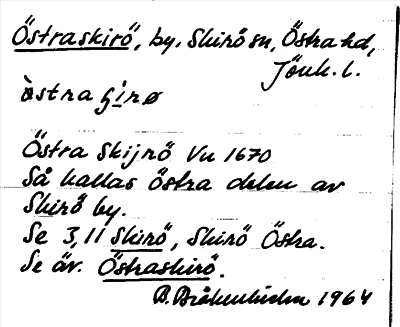 Östraskirö, by. Skirö sn, Östra hd,
Jönk. l.
östra ɧirø
Östra Skijrö Vu 1670
Så kallas östra delen av
Skirö by.
Se 3, 11 Skirö, Skirö Östra.
Se äv. Östraskirö.
B. Bråkenhielm 1964